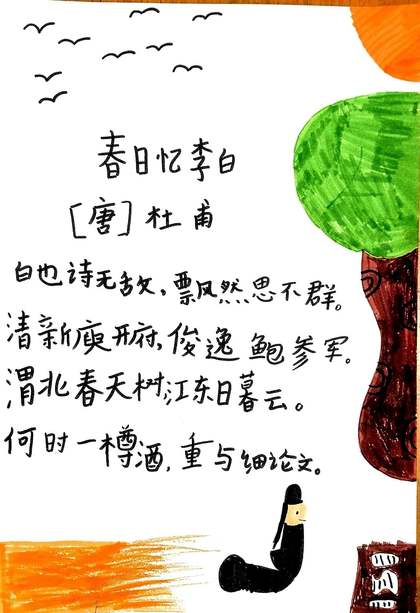 春日忆李白
[唐]杜甫
白也诗无敌、飘然思不群。
清新庾开府,俊逸鲍参军。
渭北春天树,江东日暮云。
何时一樽酒,重与细论文。